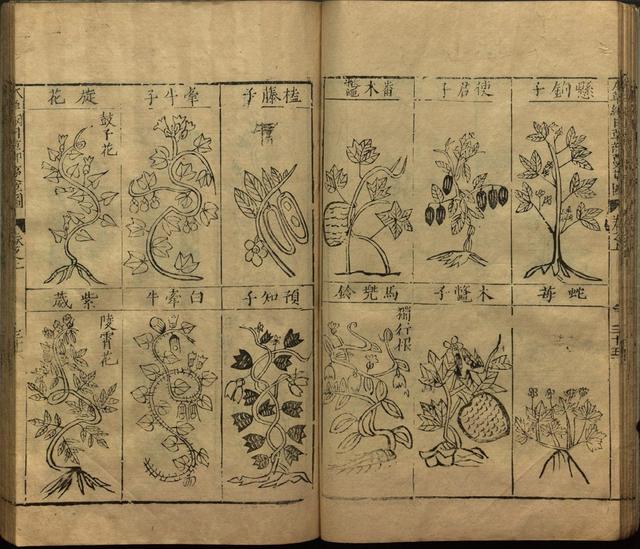 懸鉤子
使君子
番木鼈
蛇苺
木鼈子
馬兜鈴
獨行根
榼藤子
牽牛子
旋花
鼓子花
預知子
白牽牛
紫葳
陵霄花